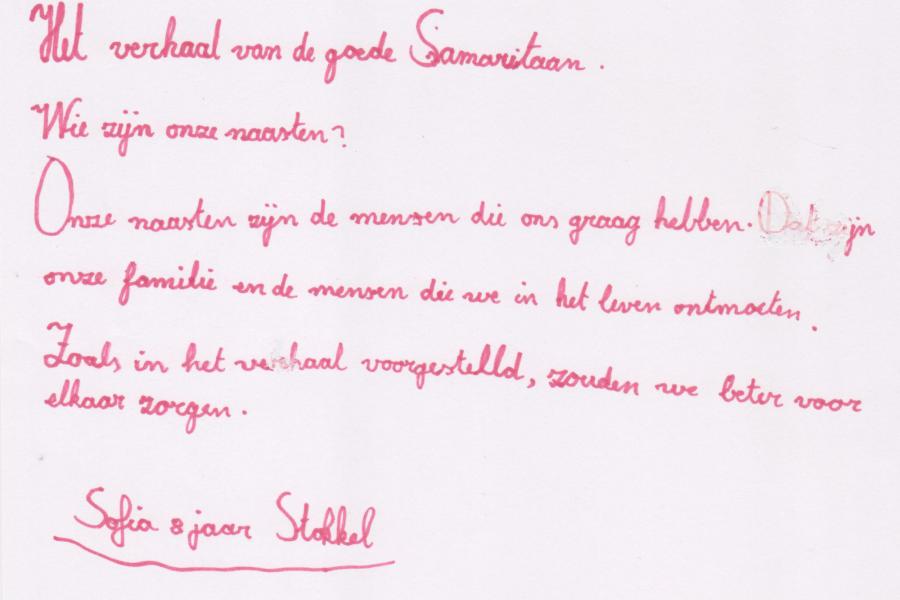 Het verhaal van de goede Samaritaan.
Wie zijn onze naasten?
Onze naasten zijn de mensen die ons graag hebben. Dat zijn
onze familie en de mensen die we in het leven ontmoeten.
Zoals in het verhaal voorgestelld, zouden we beter voor
elkaar zorgen.
Sofia 8 jaar Stokkel